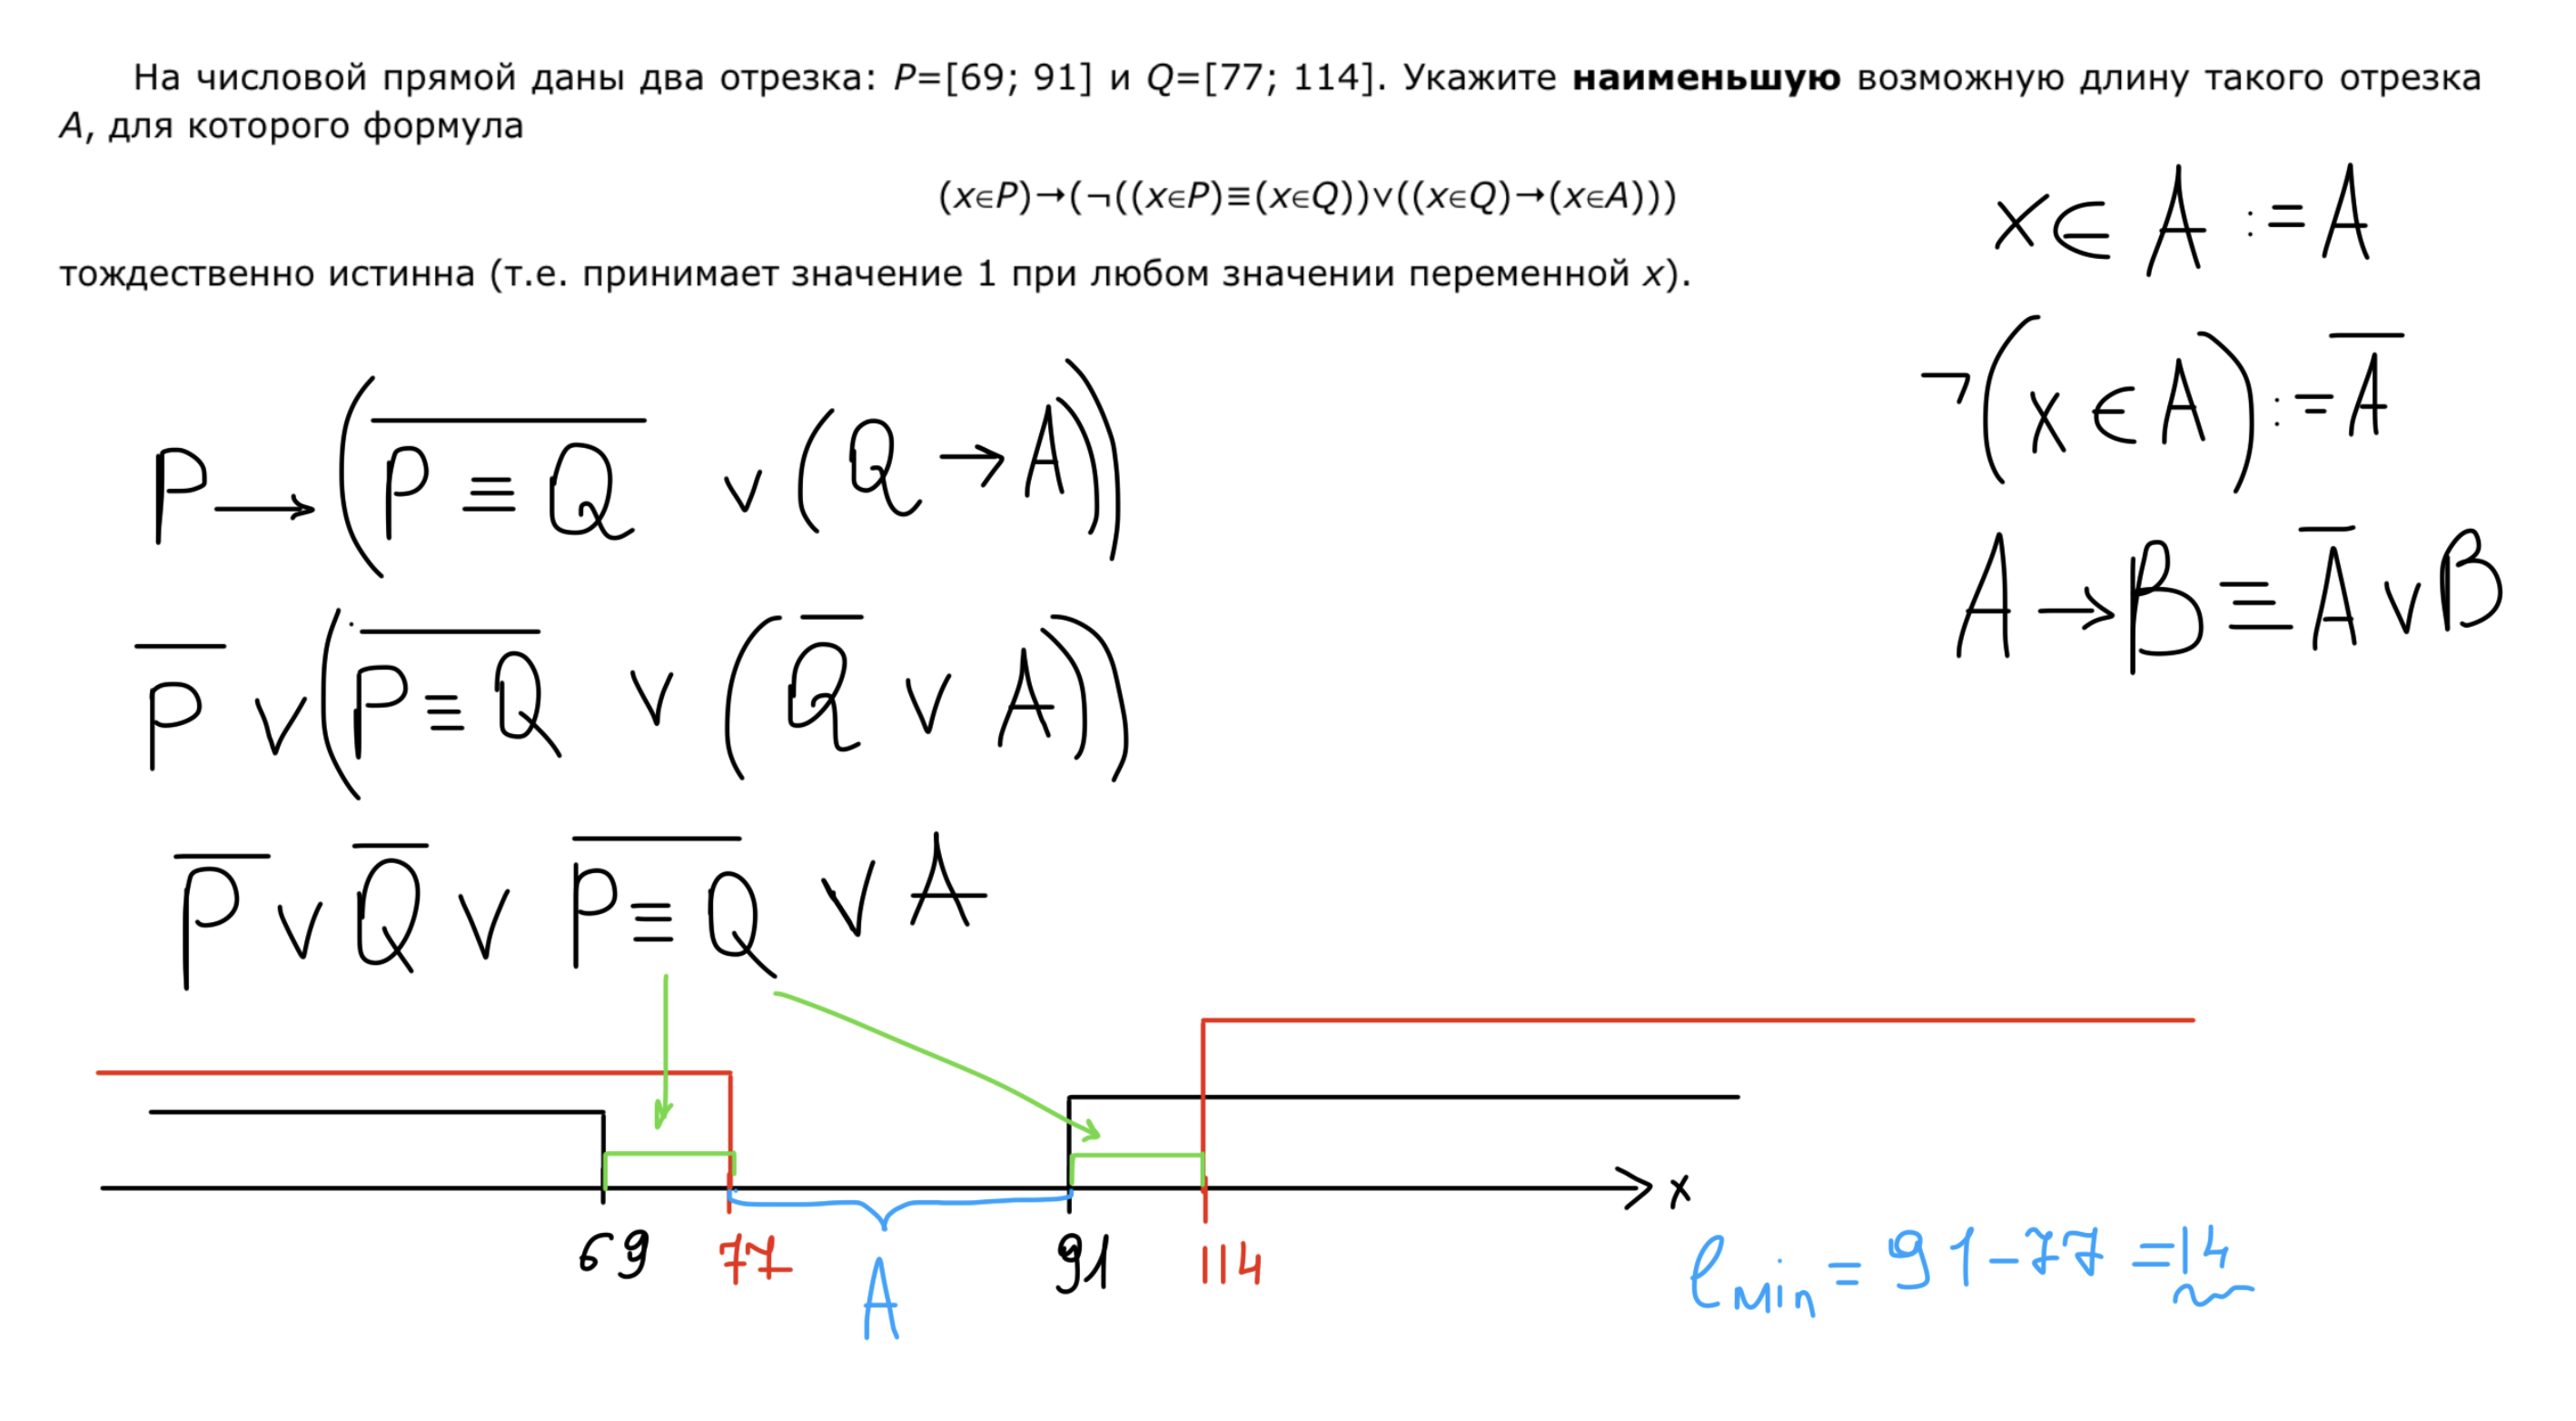 На числовой прямой даны два отрезка: P=[69; 91] и Q=[77; 114]. Укажите наименьшую возможную длину такого отрезка
A, для которого формула
(x∈P)→(¬((x∈P)≡(x∈Q))∨((x∈Q)→(x∈A)))
тождественно истинна (т.е. принимает значение 1 при любом значении переменной x).
x∈A := A
¬(x∈A) := A̅
A→B≡A̅∨B
P→(P̅ ̅≡̅ ̅Q̅ ∨(Q→A))
P̅∨(P̅ ̅≡̅ ̅Q̅ ∨(Q̅∨A))
P̅∨Q̅∨P̅ ̅≡̅ ̅Q̅∨A
x
69 77 91 114
A
ℓmin = 91-77 =14